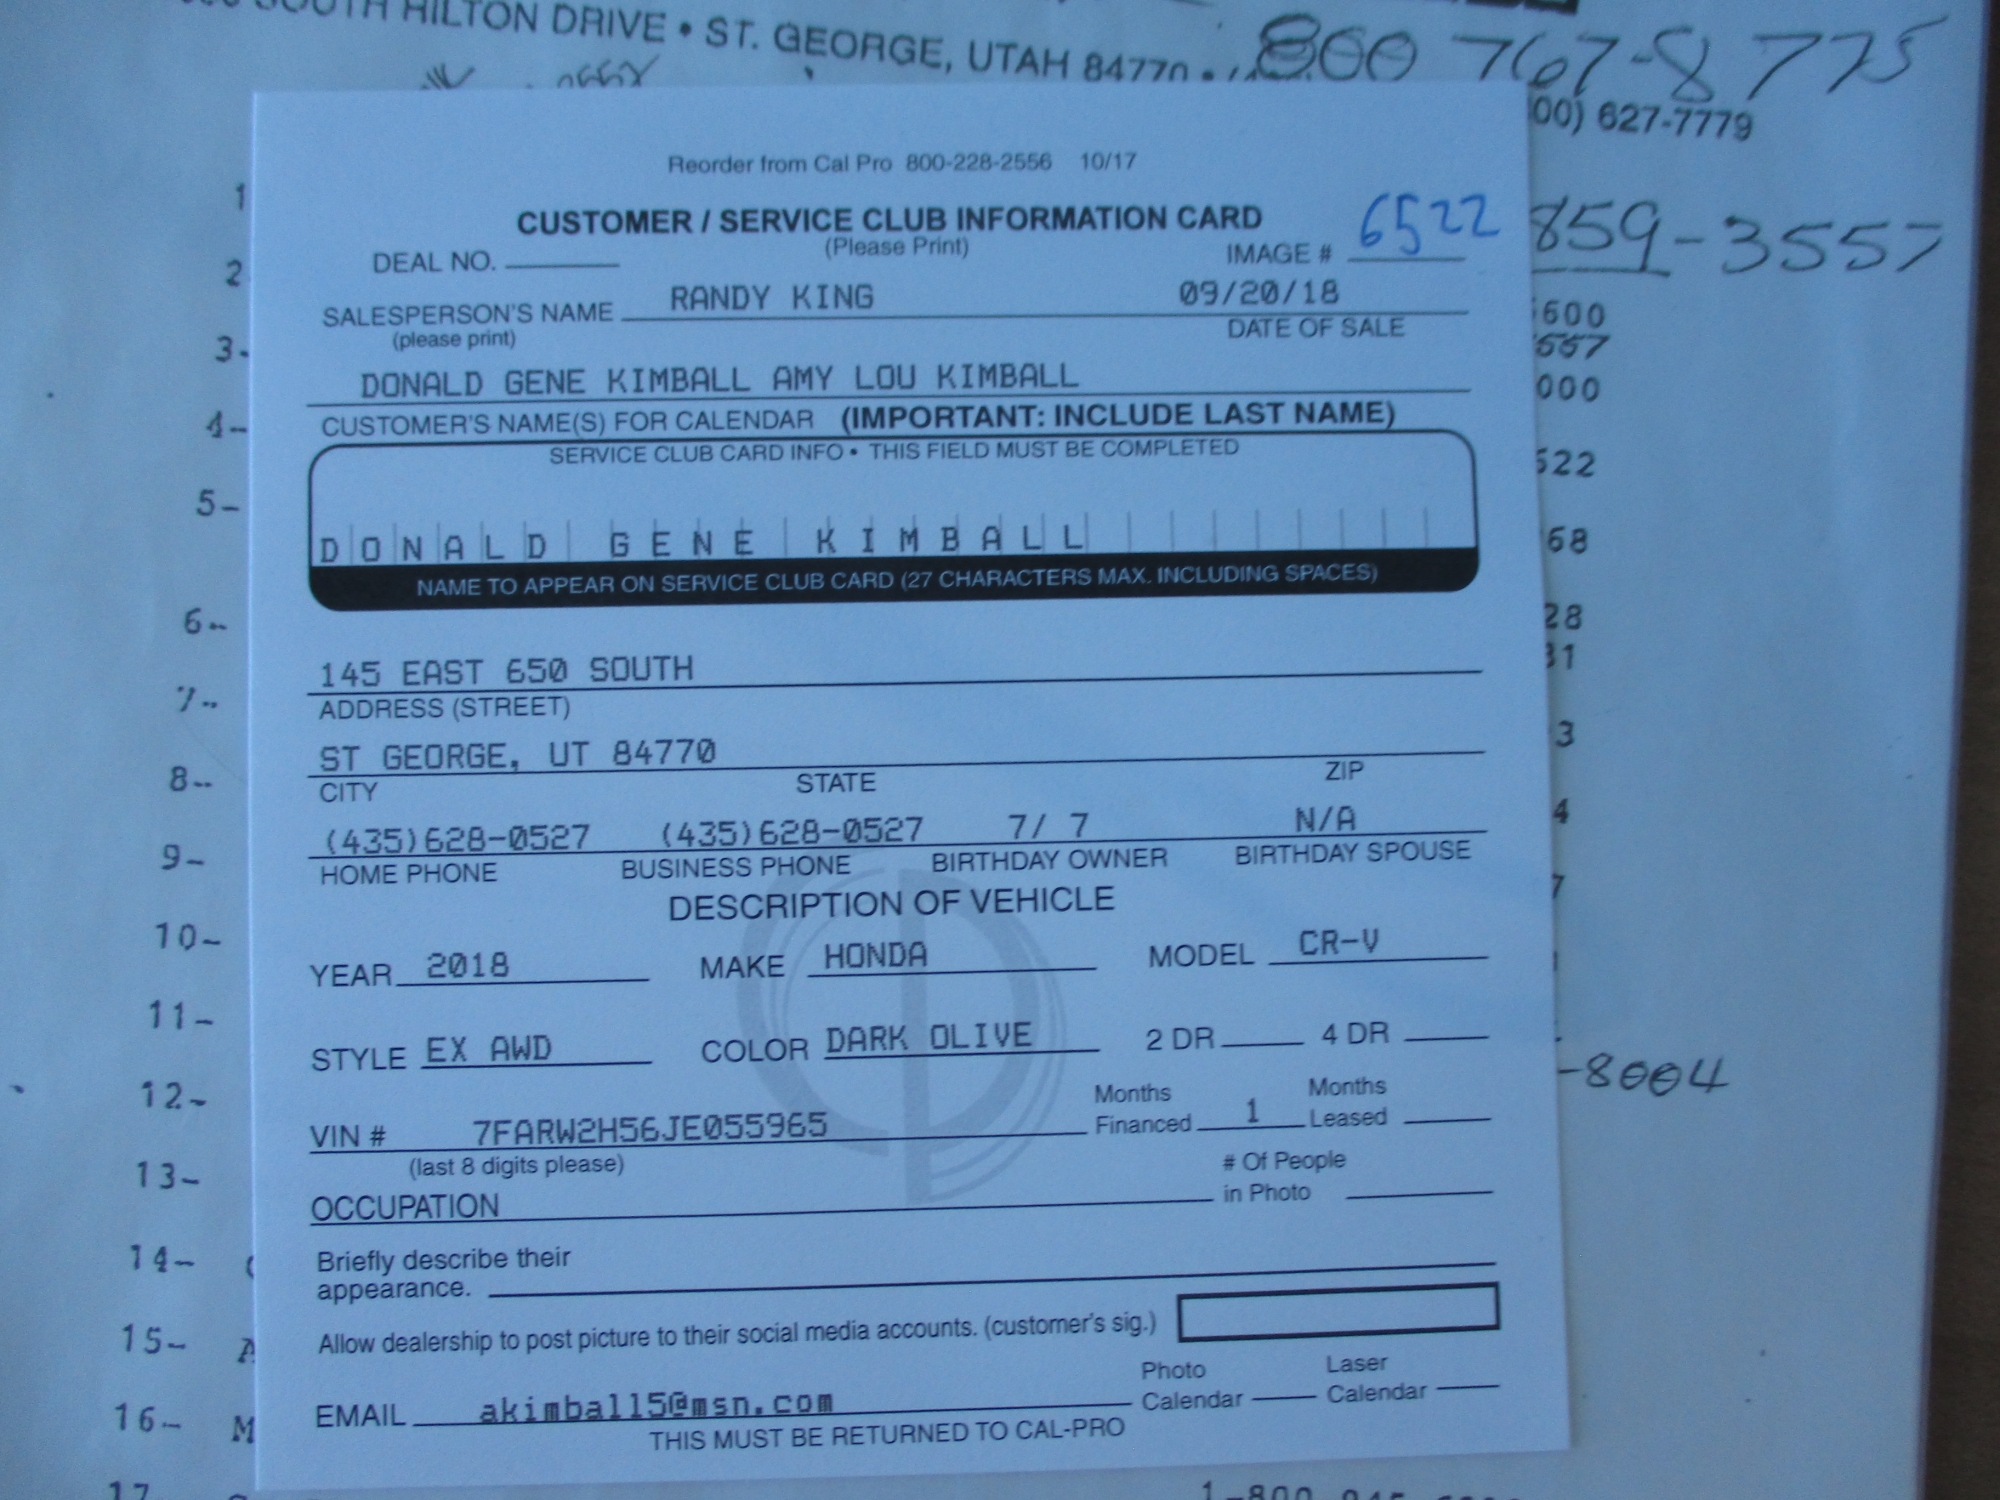 SOUTH HILTON DRIVE • ST. GEORGE, UTAH 84770 •
800 767-8775
00) 627-7779
Reorder from Cal Pro 800-228-2556 10/17
CUSTOMER / SERVICE CLUB INFORMATION CARD
(Please Print)
DEAL NO. IMAGE # 6522
859-3557
SALESPERSON'S NAME RANDY KING 09/20/18
(please print) DATE OF SALE
DONALD GENE KIMBALL AMY LOU KIMBALL
CUSTOMER'S NAME(S) FOR CALENDAR (IMPORTANT: INCLUDE LAST NAME)
SERVICE CLUB CARD INFO • THIS FIELD MUST BE COMPLETED
DONALD GENE KIMBALL
NAME TO APPEAR ON SERVICE CLUB CARD (27 CHARACTERS MAX. INCLUDING SPACES)
145 EAST 650 SOUTH
ADDRESS (STREET)
ST GEORGE, UT 84770
CITY STATE ZIP
(435)628-0527 (435)628-0527 7/ 7 N/A
HOME PHONE BUSINESS PHONE BIRTHDAY OWNER BIRTHDAY SPOUSE
DESCRIPTION OF VEHICLE
YEAR 2018 MAKE HONDA MODEL CR-V
STYLE EX AWD COLOR DARK OLIVE 2 DR 4 DR
VIN # 7FARW2H56JE055965 Months Financed 1 Months Leased
(last 8 digits please)
OCCUPATION # Of People in Photo
Briefly describe their
appearance.
Allow dealership to post picture to their social media accounts. (customer's sig.)
EMAIL akimball5@msn.com Photo Calendar Laser Calendar
THIS MUST BE RETURNED TO CAL-PRO
1
2
3-
4-
5-
6-
7-
8-
9-
10-
11-
12-
13-
14-
15- A
16- M
17
600
557
000
522
68
28
31
3
4
7
-8004